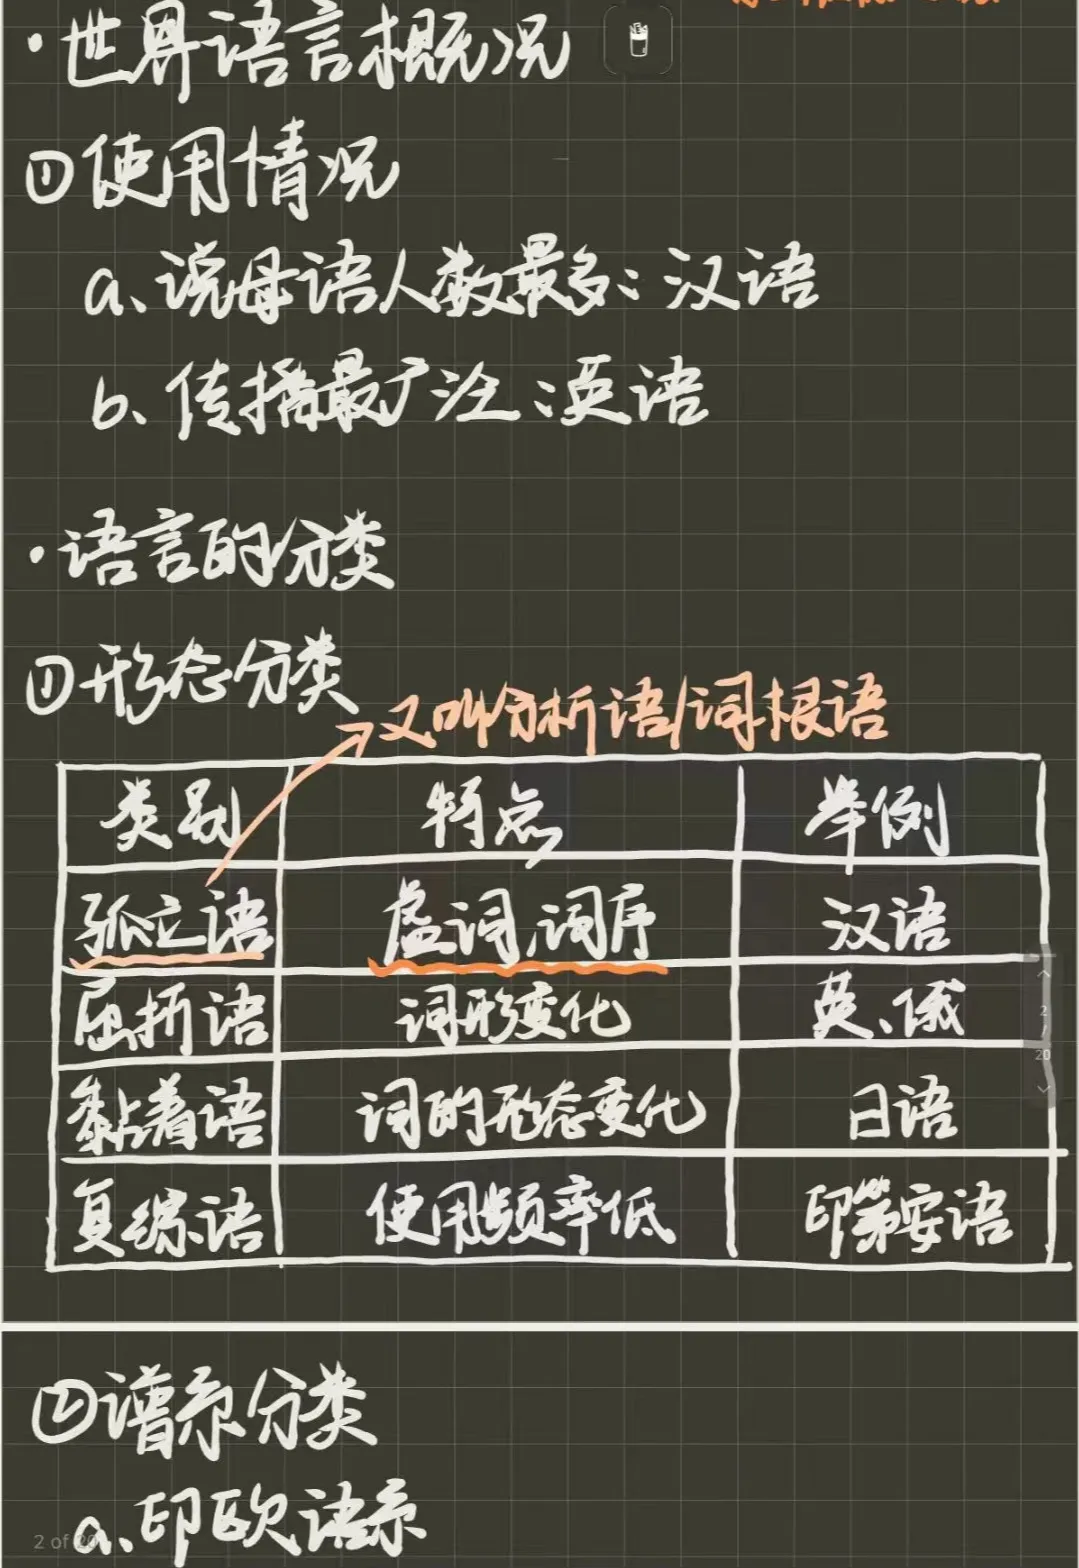 ·世界语言概况
①使用情况
a、说母语人数最多：汉语
b、传播最广泛：英语
·语言的分类
①形态分类
又叫分析语/词根语
类别 特点 举例
孤立语 虚词、词序 汉语
屈折语 词形变化 英、俄
黏着语 词的形态变化 日语
复综语 使用频率低 印第安语
2
/
20
②谱系分类
a、印欧语系
2 of